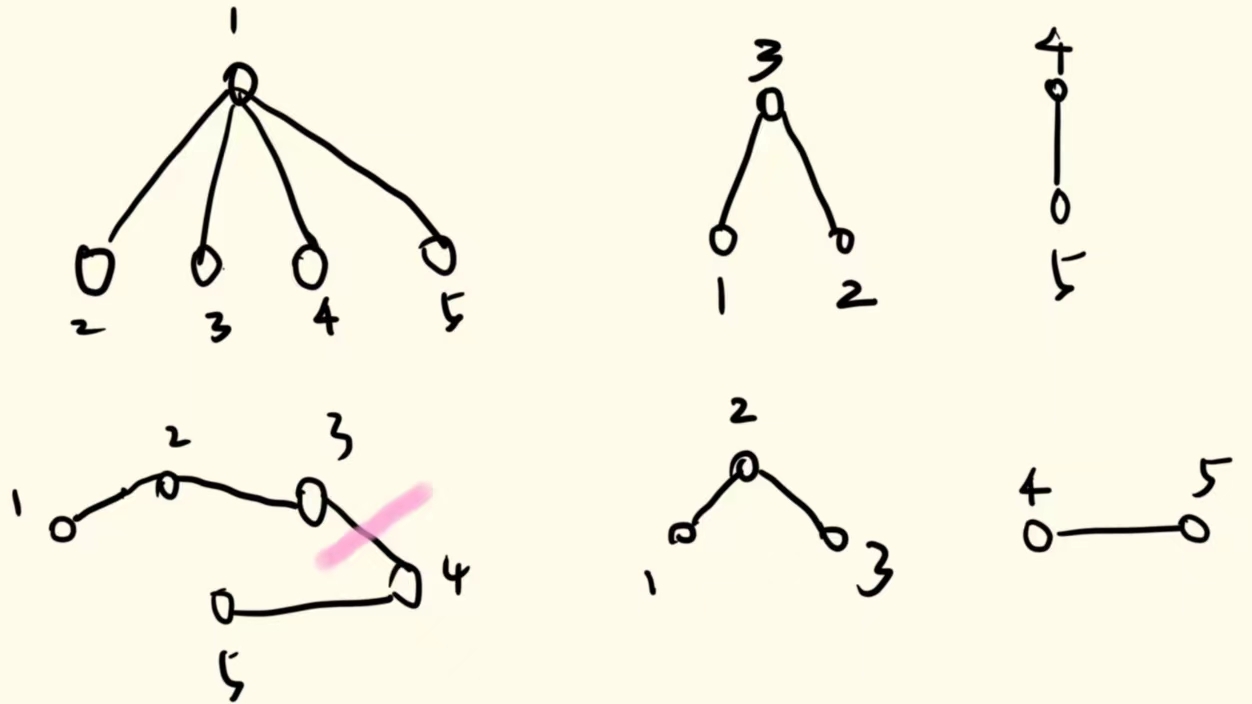 1
2 3 4 5
3
1 2
4
5
1 2 3
4
5
2
1 3
4 5